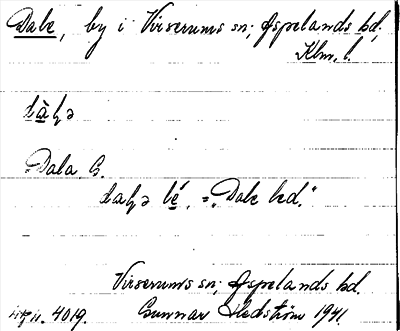 Dale, by i Virserums sn, Aspelands hd,
Klm. l.
dàꞎə
Dala, S.
daꞎə bé. = "Dale bed."
Virserums sn, Aspelands hd.
4019. Gunnar Hedström 1941